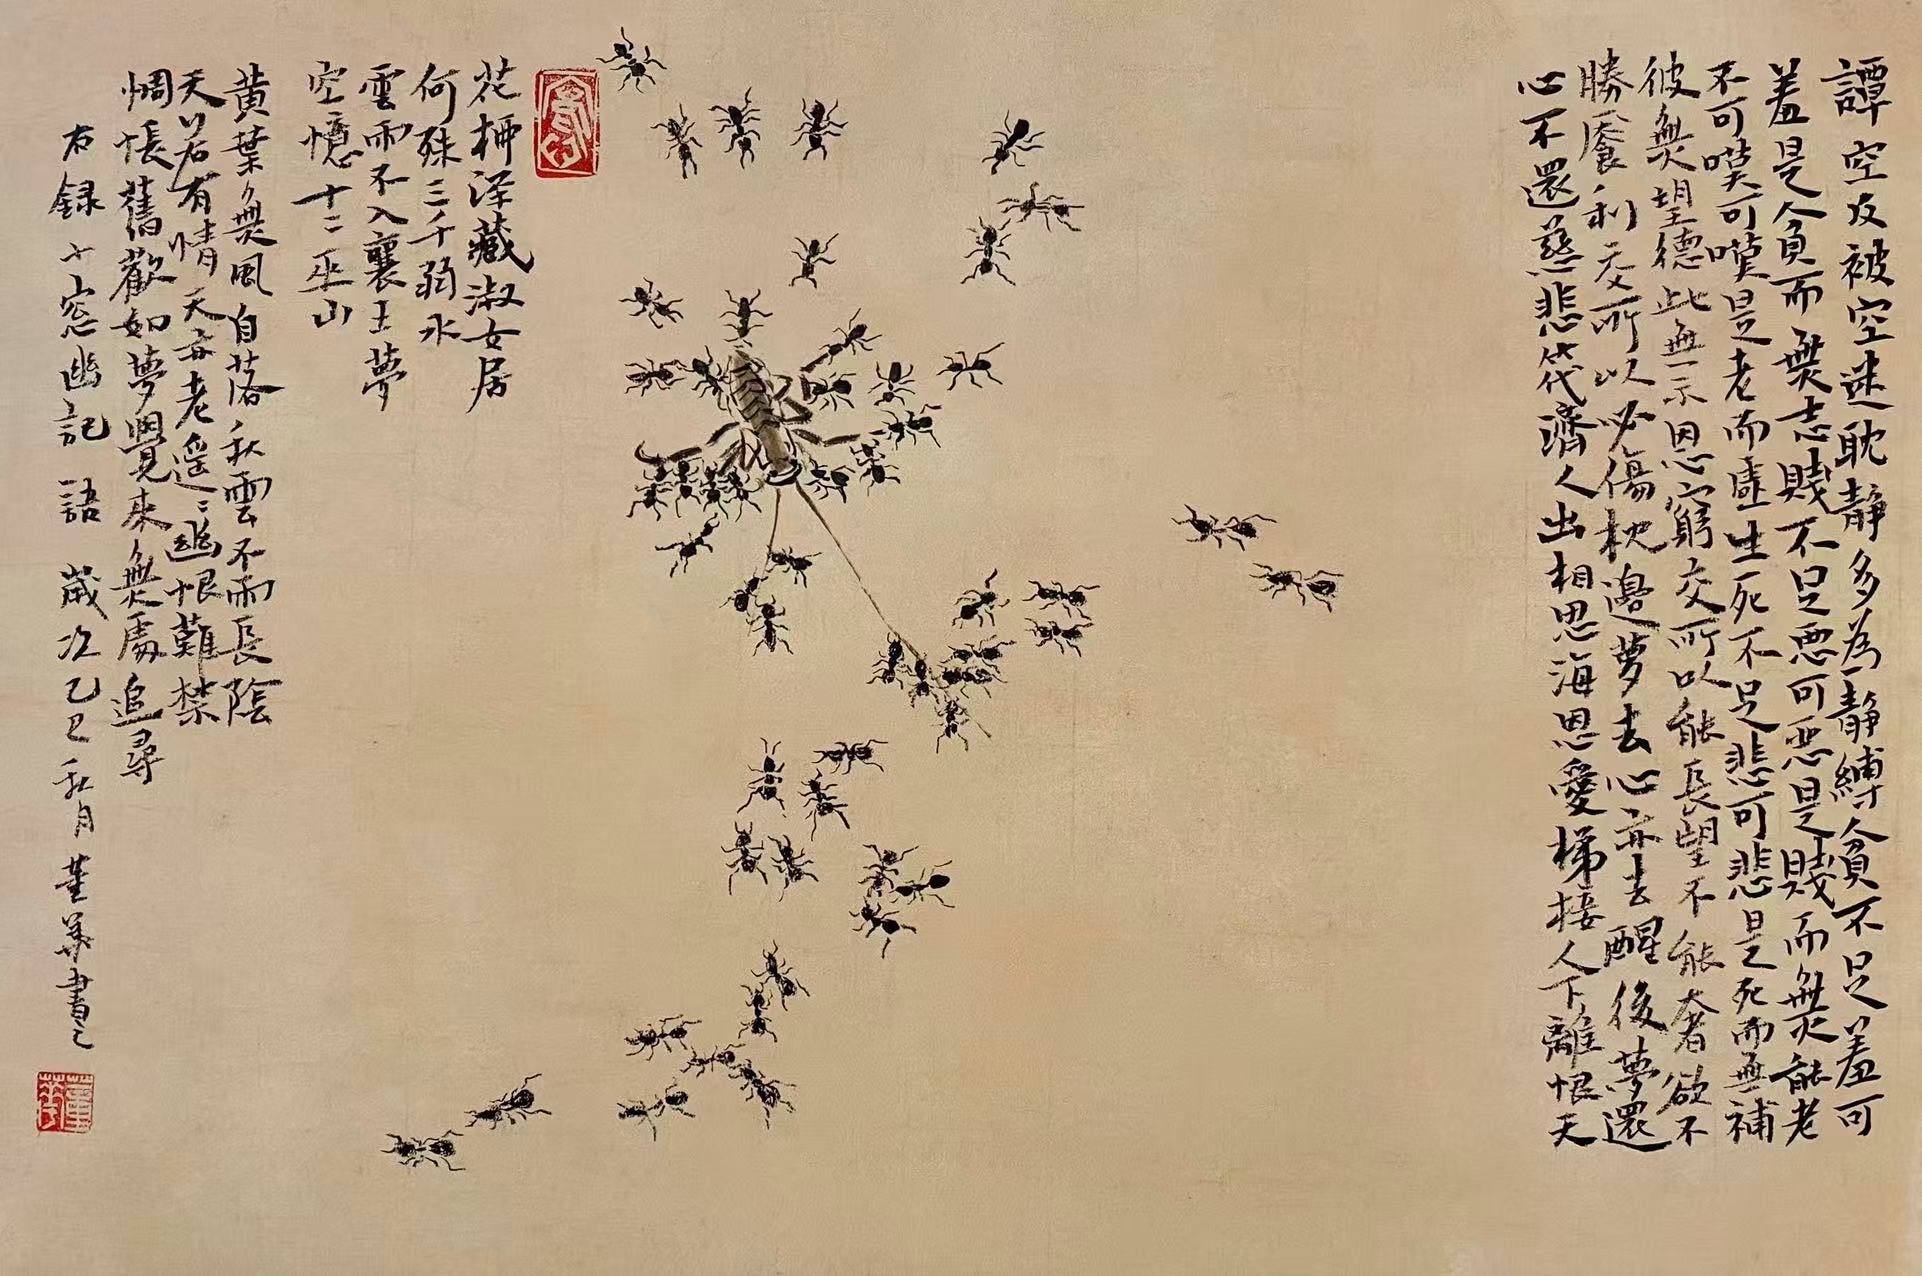 譚空反被空迷耽静多為静縛貪不足羞可
羞是貪而無志賤不足惡可惡是賤而無能老
不可嘆可嘆是老而虛生死不足悲可悲是死而無補
彼無望德此無示恩窮交所以能長望不能奢欲不
勝饜利交所以必傷枕邊夢去心亦去醒後夢還
心不還慈悲筏濟人出相思海恩愛梯接人下離恨天
花柵淫藏淑女居
何殊三千弱水
雲雨不入襄王夢
空憶十二巫山
黄葉無風自落秋雲不雨長陰
天若有情天亦老遥遥幽恨難禁
惆悵舊歡如夢覺来無處追尋
右録小窓幽記語 歲次乙巳秋月 董華書之
董華